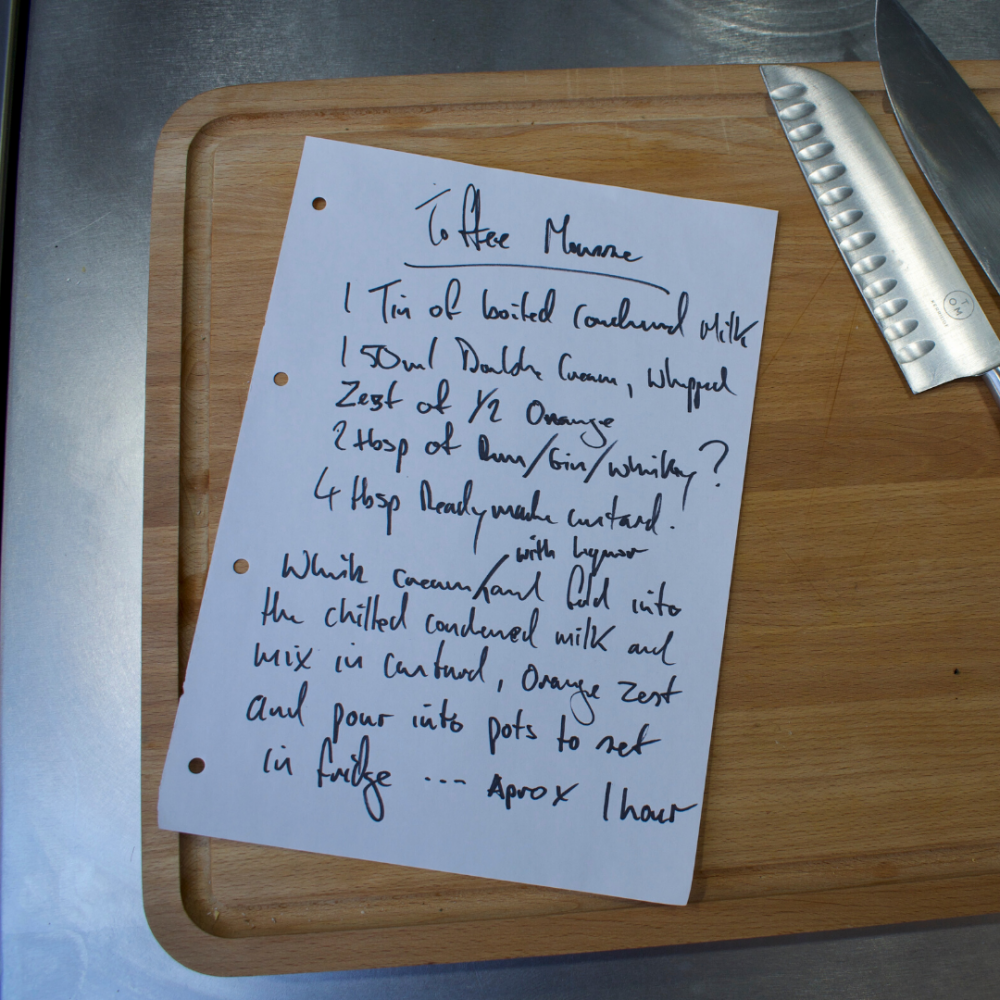 Toffee Mousse
1 Tin of boiled Condensed Milk
150ml Double Cream, Whipped
Zest of 1/2 Orange
2 tbsp of Rum/Gin/Whisky?
4 tbsp Readymade custard.
with liquor
Whisk cream/and fold into
the chilled condensed milk and
mix in custard, Orange zest
and pour into pots to set
in fridge --- Aprox 1 hour
TOM